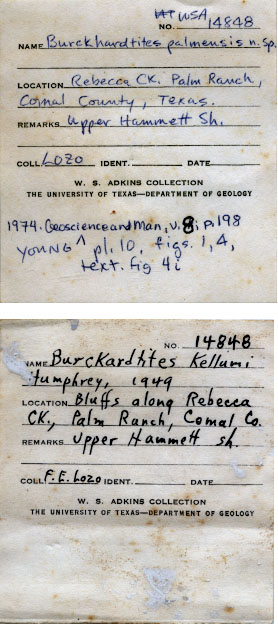 WT USA
NO. 14848
NAME Burckhardtites palmensis n. sp.
LOCATION Rebecca CK. Palm Ranch,
Comal County, Texas.
REMARKS Upper Hammett Sh.
COLL. Lozo IDENT. DATE
W. S. ADKINS COLLECTION
THE UNIVERSITY OF TEXAS—DEPARTMENT OF GEOLOGY
1974. Geoscience and Man, v. 8: p. 198
YOUNG ^ pl. 10, figs. 1, 4,
text. fig 4i
NO. 14848
NAME Burckardtites Kellumi
Humphrey, 1949
LOCATION Bluffs along Rebecca
CK., Palm Ranch, Comal Co.
REMARKS Upper Hammett sh.
COLL. F. E. Lozo IDENT. DATE
W. S. ADKINS COLLECTION
THE UNIVERSITY OF TEXAS—DEPARTMENT OF GEOLOGY